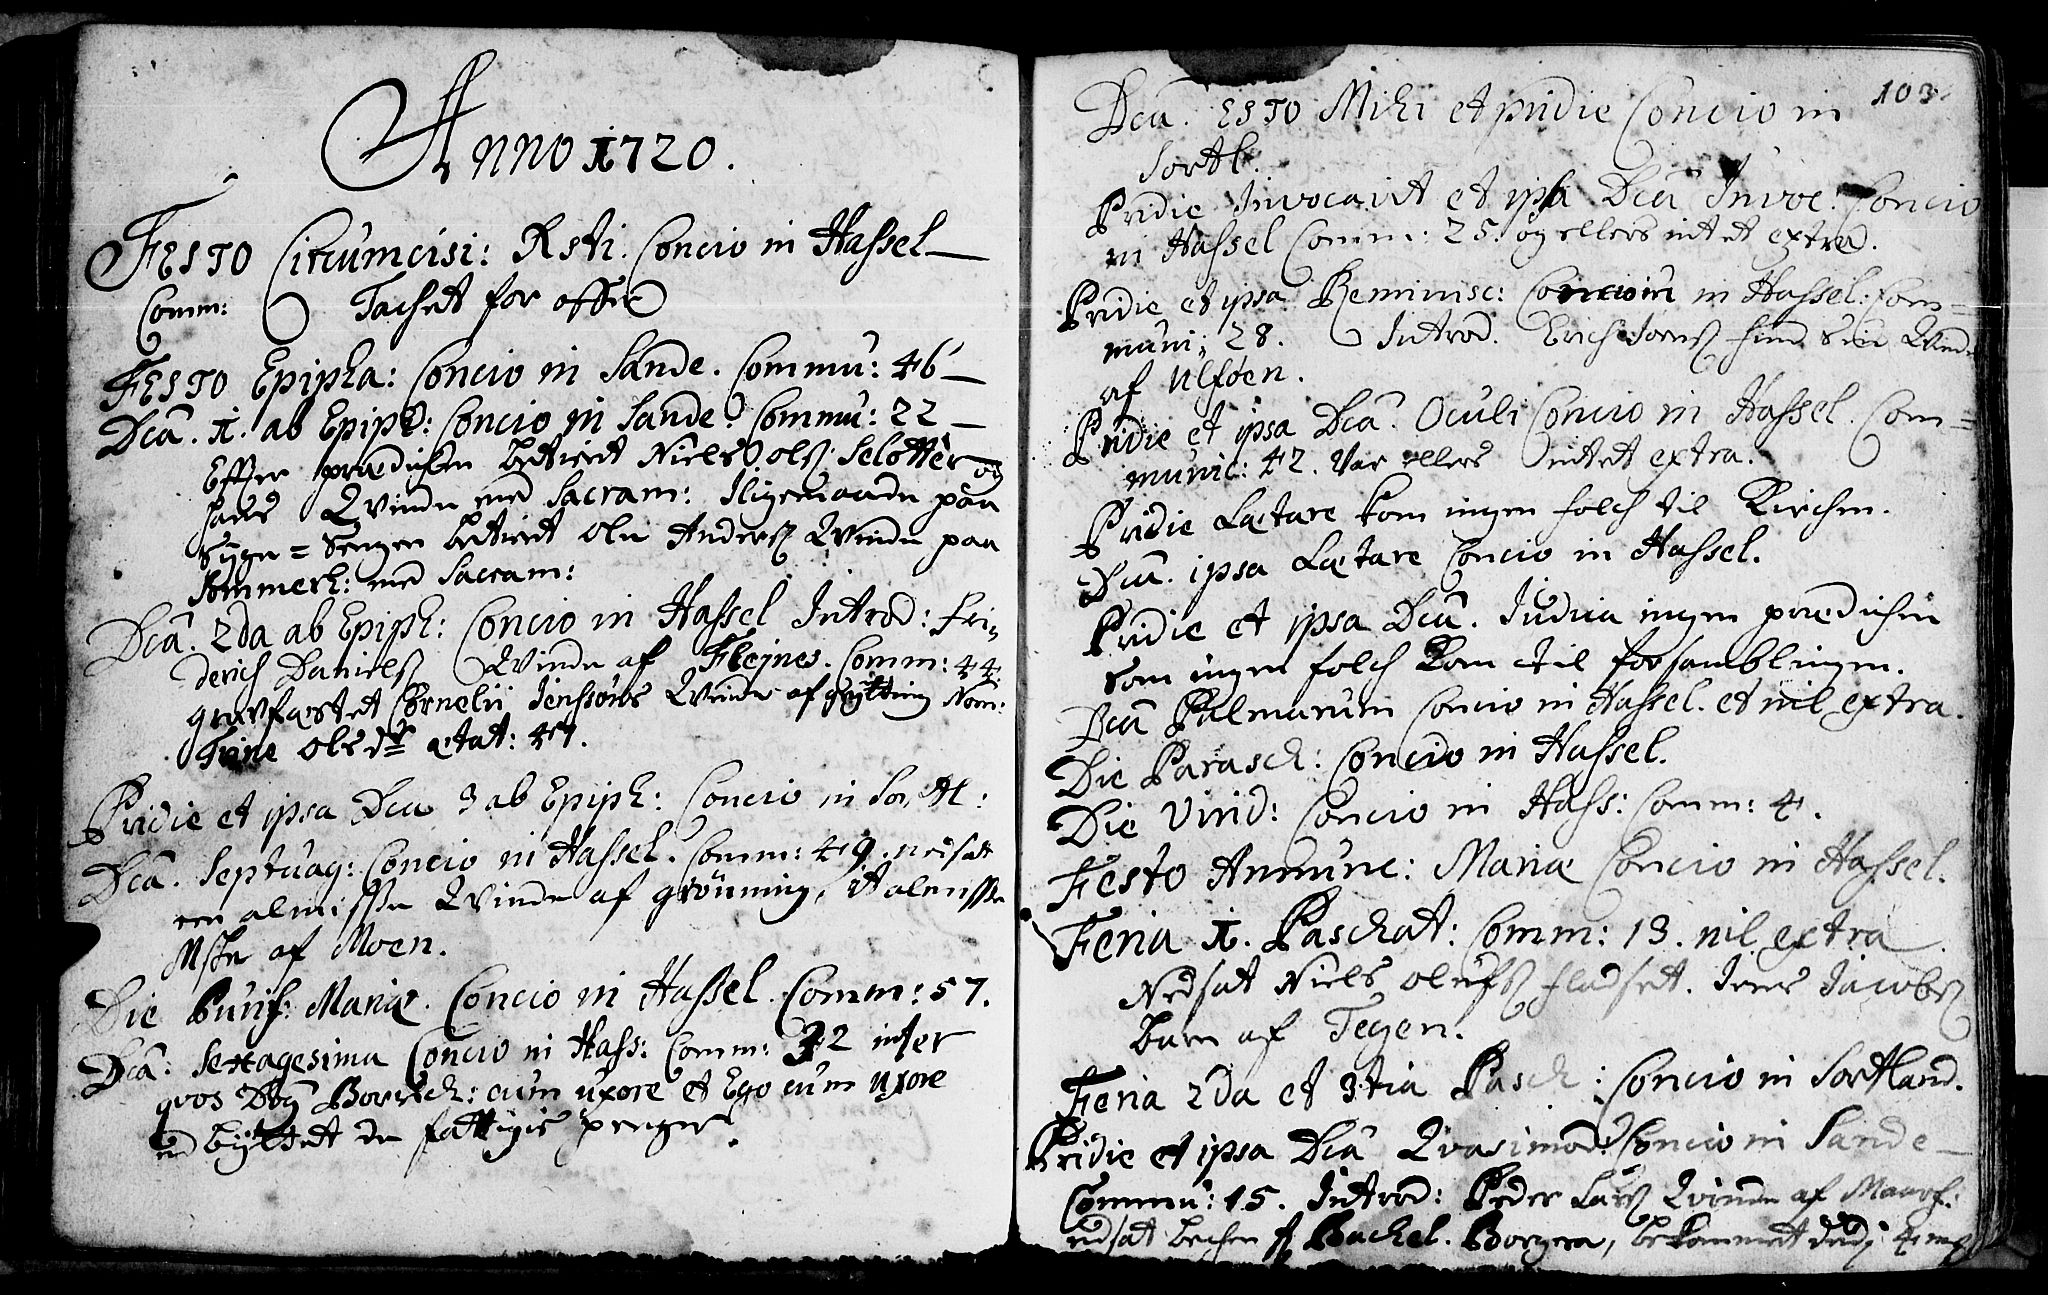 Anno 1720.
FESTO Circumcisi: Xsti. Concio in Hassel
Comm: Tachet for offer
FESTO Epipha: Concio in Sande. Commu: 46
Dca. 1. ab Epiph: Concio in Sande. Commu: 22
Effter prædichen betient Niels Ols: Slotter og
hans Qvinde med Sacram: Iligemaade paa
Syge=Sengen betient Ole Anders: Qvinde paa
Sommerh: med Sacram:
Dca. 2da ab Epiph: Concio in Hassel Introd: Fri-
derich Daniels: Qvinde af Fleines. Comm: 44.
gravfæstet Cornelii Jenssøns Qvinde af Nom:
Trine Olsdr ætat: 47.
Pridie et ipsa Dca 3 ab Epiph: Concio in Sortl:
Dca. Septuag: Concio in Hassel. Comm: 49. nedsatt
een almisse Qvinde af grönning, it almisse
af Moen.
Die Purif: Mariæ. Concio in Hassel. Comm: 57.
Dca: Sexagesima Concio in Hass: Comm: 32 inter
qvos Dn Borch: cum uxore et Ego cum uxore
ud byttet de fattigis penger.
103
Dca. ESTO Mihi et pridie Concio in
Sortl.
Pridie Invocavit et ipsa Dca Invoc. Concio
in Hassel Comm: 25. og ellers intet extra.
Pridie et ipsa Reminisc: Concio in Hassel: Com=
muni: 28. Introd. Erich Joens: hund Sin Qvinde
af Ulføen.
Pridie et ipsa Dca. Oculi Concio in Hassel. Com=
munic: 42. Var ellers intet extra.
Pridie Lætare kom ingen folch til Kirchen.
Dca. ipsa Lætare Concio in Hassel.
Pridie et ipsa Dca. Judica ingen prædichen
som ingen folch kom til forsamblingen.
Dca Palmarum Concio in Hassel. et nil extra.
Die Parasch: Concio in Hassel.
Die Virid: Concio in Hass: Comm: 4.
Festo Annunc: Mariæ Concio in Hassel.
Feria 1. Paschat: Comm: 13. nil extra
Nedsat Niels Olufs: fladset. Jens Jacobs:
barn af Tegen.
Feria 2da et 3tia Pasch: Concio in Sortland.
Pridie et ipsa Dca Qvasimod: Concio in Sande
Commu: 15. Introd: Peder Lars: Qvinde af Maars:
nedsat Bachel. Borgen, bekommet 4 mk